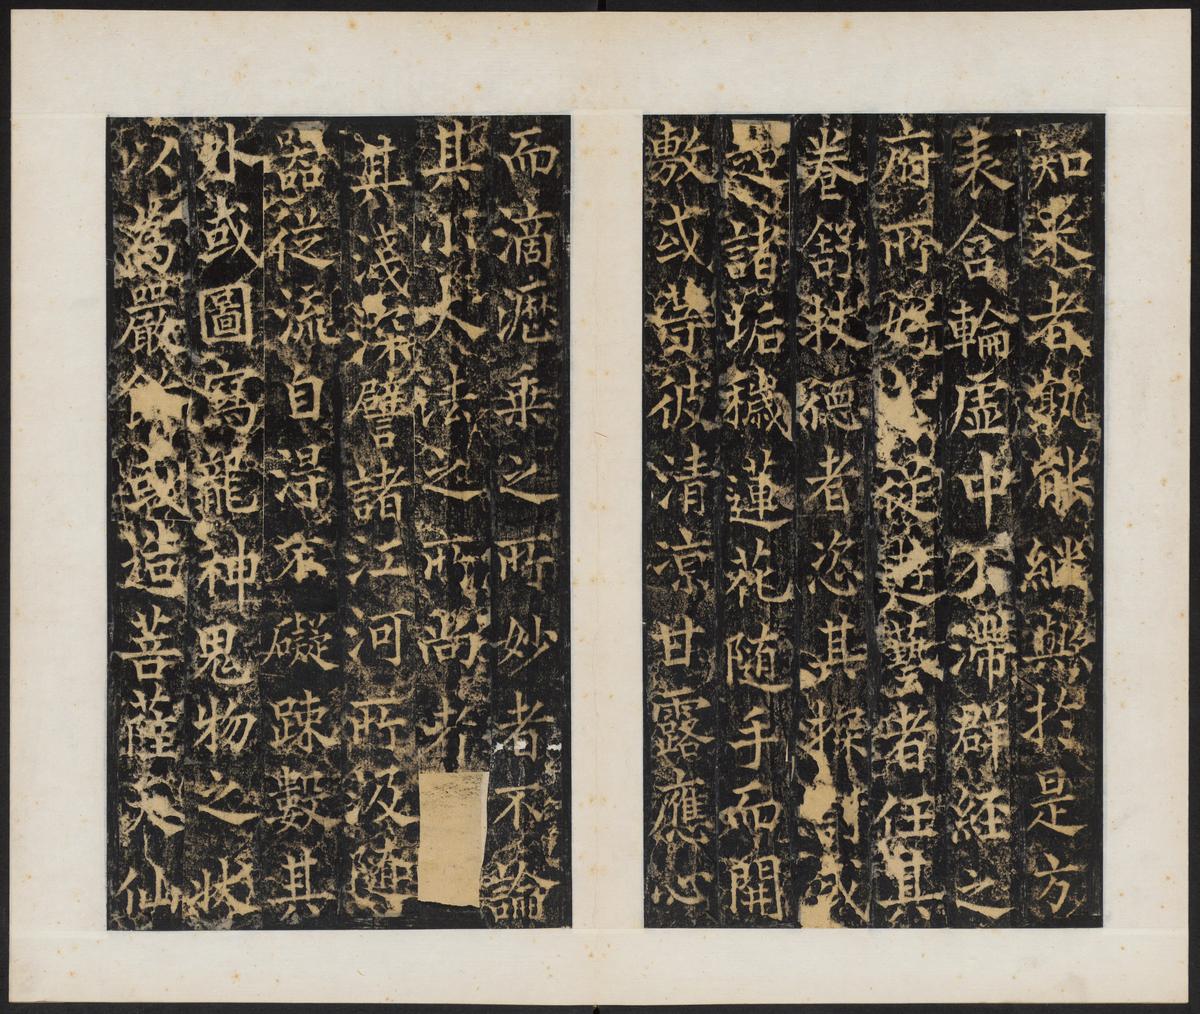 知悉者孰能継與扵是方
表含輪虚中不滯群経之
府所好從遊藝者任其
卷舒扶徳者恣其操或
之諸垢穢蓮花随手而開
敷或等彼清凉甘露應心
而滴瀝乗之所妙者不論
其小大法之所尚者
其浅深譬諸江河所汲随
器従流自淂不礙踈數其
外或圖寫龍神鬼物之状
以為嚴飾或造菩薩天仙